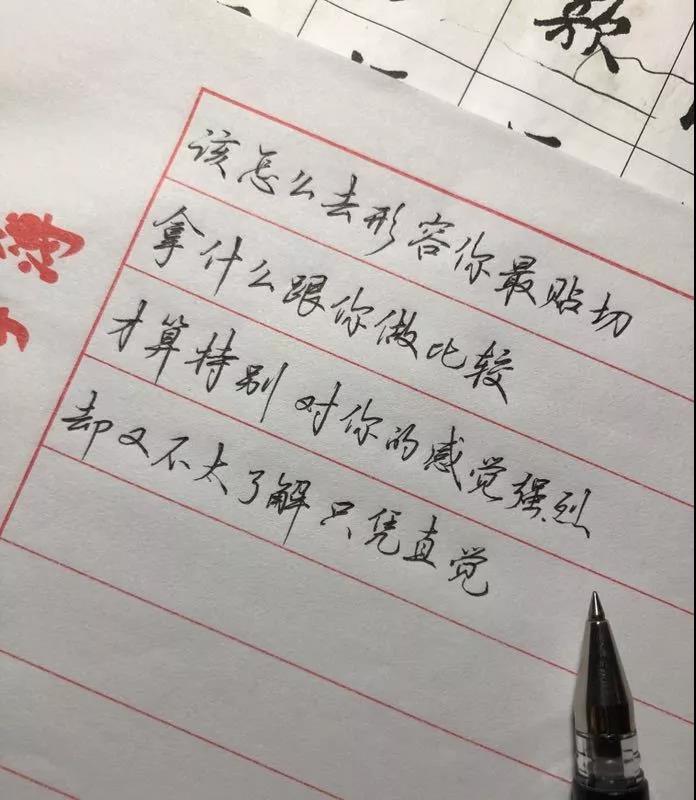 歌
该怎么去形容你最贴切
拿什么跟你做比较
才算特别 对你的感觉强烈
却又不太了解 只凭直觉